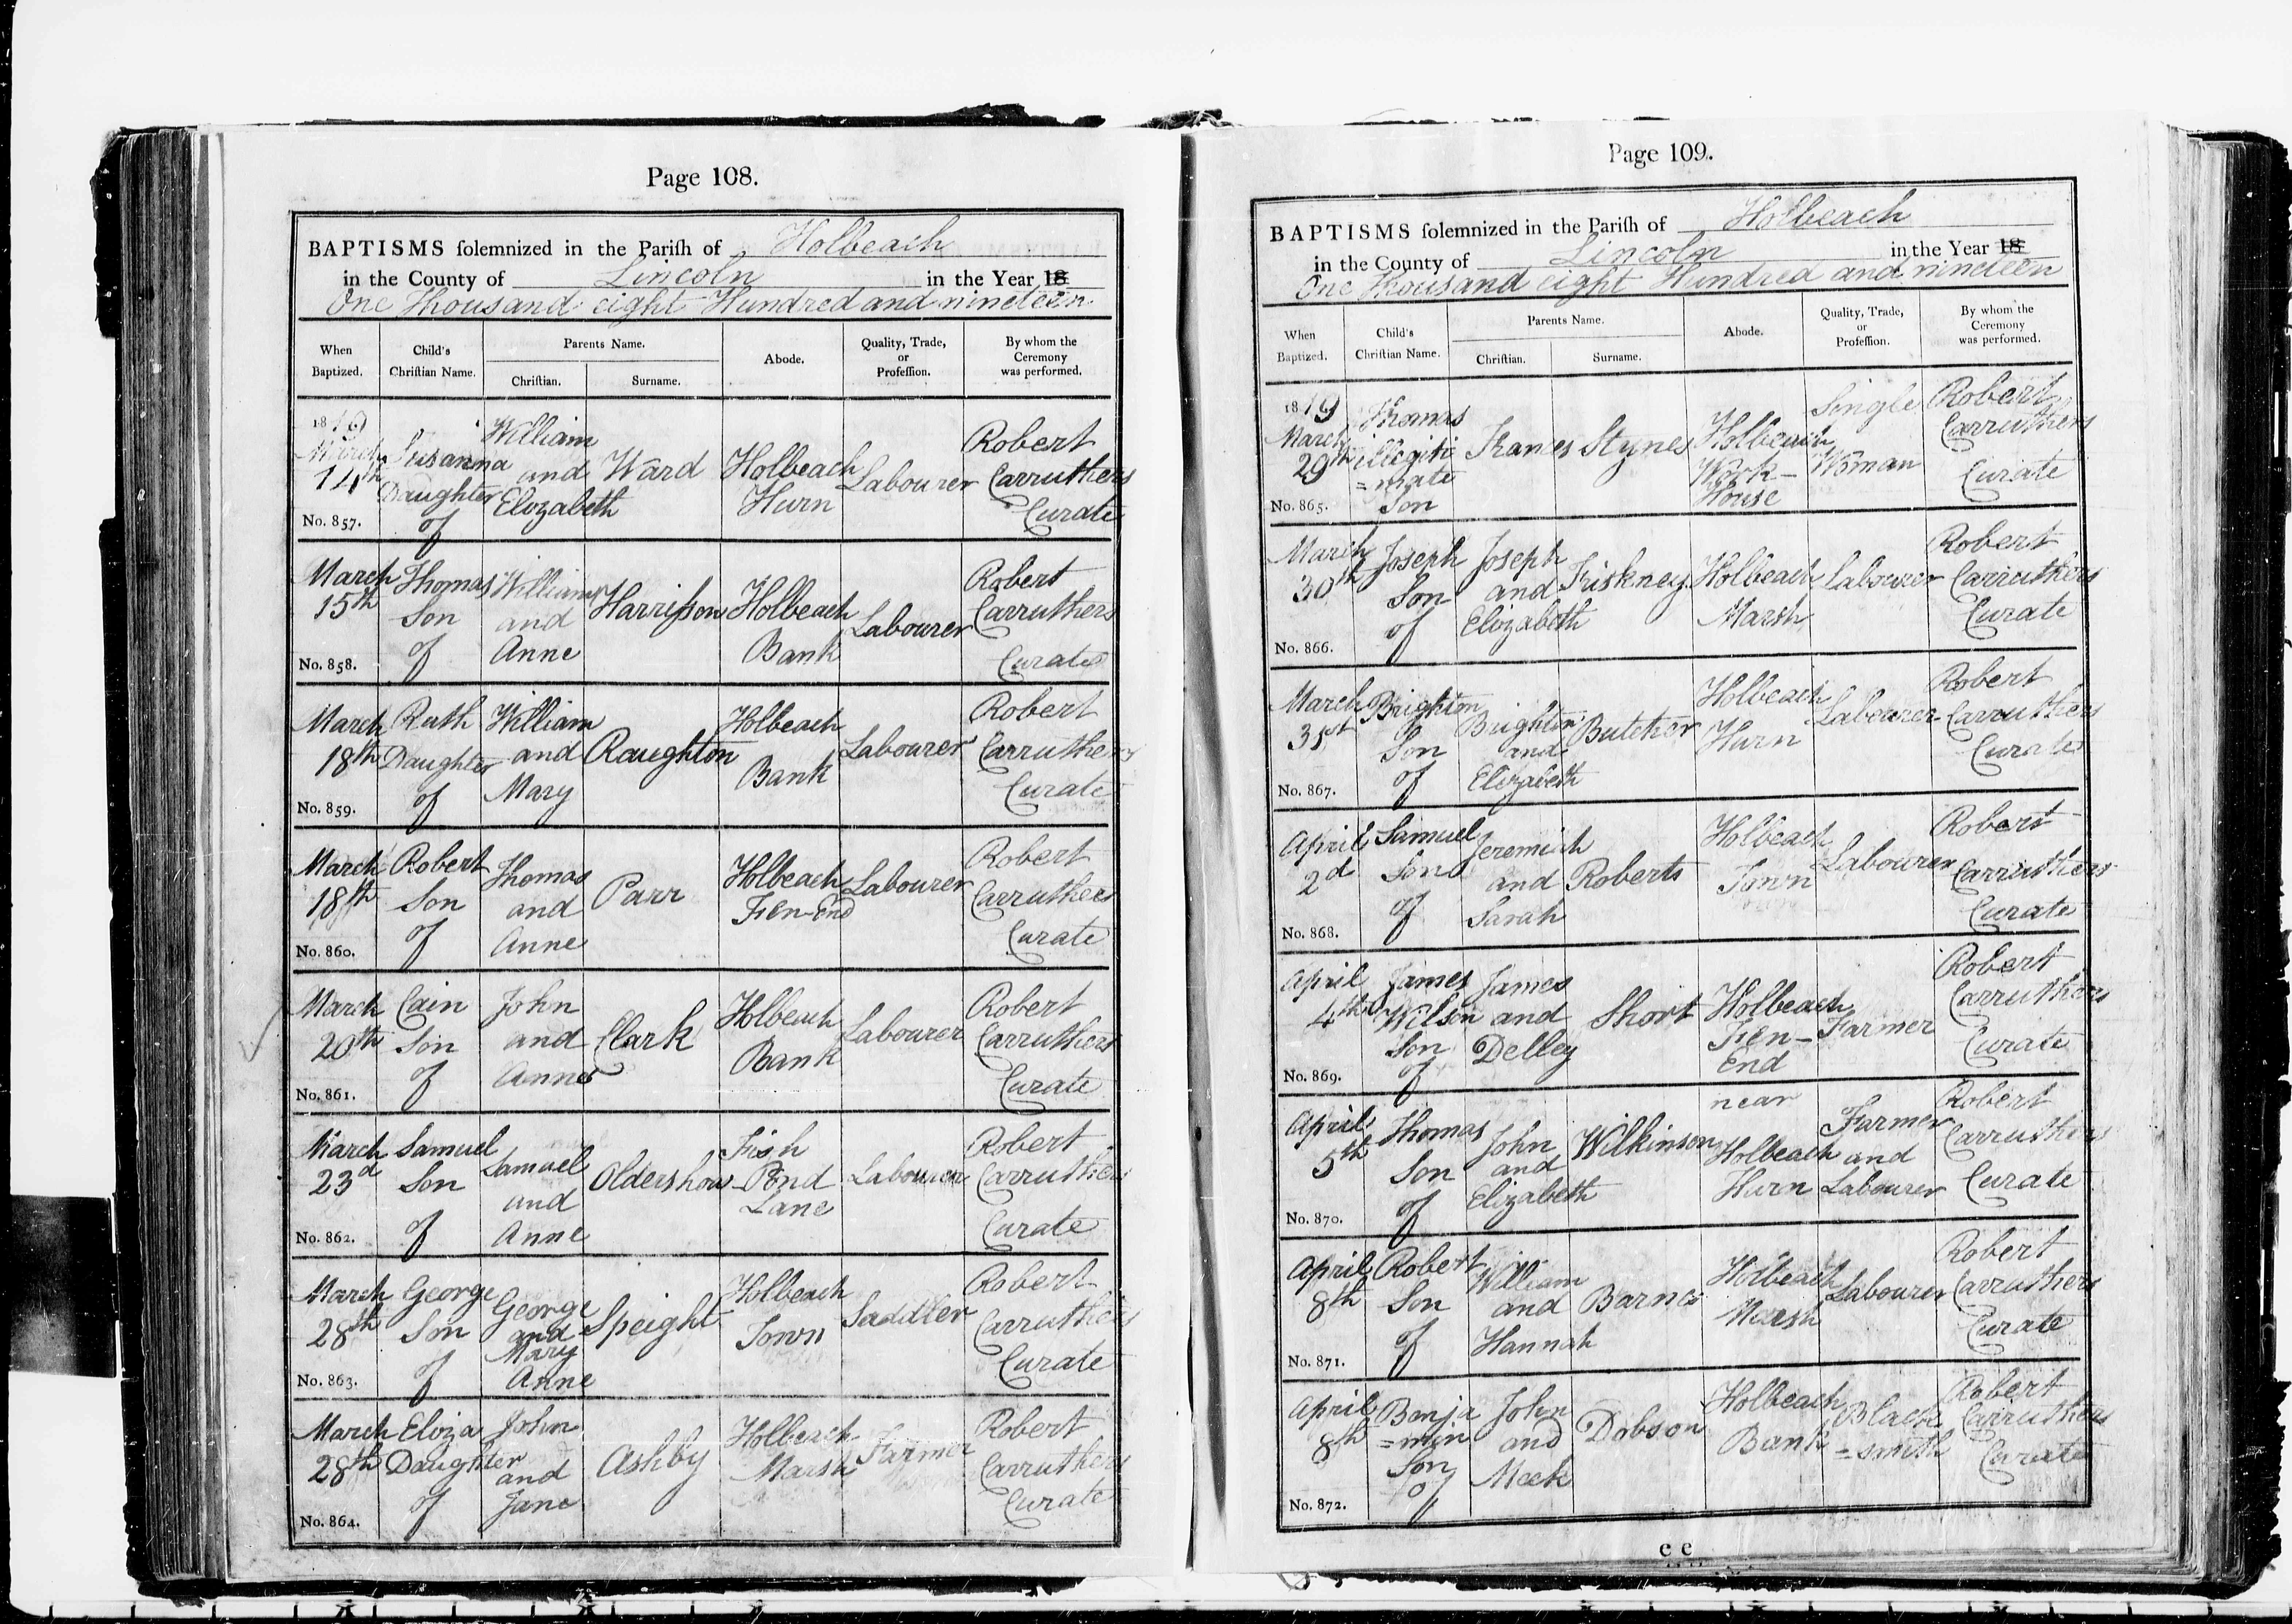 Page 108.
BAPTISMS solemnized in the Parish of Holbeach
in the County of Lincoln in the Year 18
One Thousand eight Hundred and nineteen.
When Baptized. Child's Christian Name. Parents Name. Christian. Surname. Abode. Quality, Trade, or Profession. By whom the Ceremony was performed.
1819
March 14th Susanna Daughter of William and Elizabeth Ward Holbeach Hurn Labourer Robert Carruthers Curate
No. 857.
March 15th Thomas Son of William and Anne Harrisson Holbeach Bank Labourer Robert Carruthers Curate
No. 858.
March 18th Ruth Daughter of William and Mary Raughton Holbeach Bank Labourer Robert Carruthers Curate
No. 859.
March 18th Robert Son of Thomas and Anne Parr Holbeach Fen-End Labourer Robert Carruthers Curate
No. 860.
March 20th Cain Son of John and Anne Clark Holbeach Bank Labourer Robert Carruthers Curate
No. 861.
March 23d Samuel Son of Samuel and Anne Oldershow Fish Pond Lane Labourer Robert Carruthers Curate
No. 862.
March 28th George Son of George and Mary Anne Speight Holbeach Town Saddler Robert Carruthers Curate
No. 863.
March 28th Eliza Daughter of John and Jane Ashby Holbeach Marsh Farmer Robert Carruthers Curate
No. 864.
Page 109.
BAPTISMS solemnized in the Parish of Holbeach
in the County of Lincoln in the Year 18
One Thousand eight Hundred and nineteen
When Baptized. Child's Christian Name. Parents Name. Christian. Surname. Abode. Quality, Trade, or Profession. By whom the Ceremony was performed.
1819
March 29th Thomas illegiti=mate Son Frances Stynes Holbeach Work-House Single Woman Robert Carruthers Curate
No. 865.
March 30th Joseph Son of Joseph and Elizabeth Friskney Holbeach Marsh Labourer Robert Carruthers Curate
No. 866.
March 31st Brighton Son of Brighton and Elizabeth Butcher Holbeach Hurn Labourer Robert Carruthers Curate
No. 867.
April 2d Samuel Son of Jeremiah and Sarah Roberts Holbeach Town Labourer Robert Carruthers Curate
No. 868.
April 4th James Wilson Son of James and Delley Short Holbeach Fen-End Farmer Robert Carruthers Curate
No. 869.
April 5th Thomas Son of John and Elizabeth Wilkinson near Holbeach Hurn Farmer and Labourer Robert Carruthers Curate
No. 870.
April 8th Robert Son of William and Hannah Barnes Holbeach Marsh Labourer Robert Carruthers Curate
No. 871.
April 8th Benja=min Son of John and Meek Dobson Holbeach Bank Black=smith Robert Carruthers Curate
No. 872.
c c